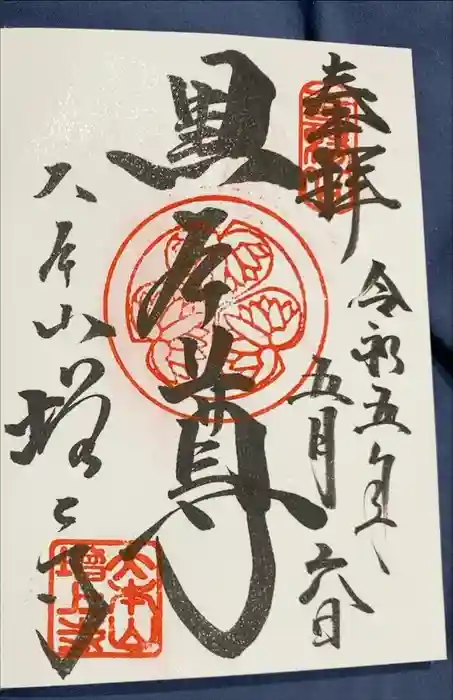 奉拝
令和五年
五月六日
黒本尊
大本山増上寺
大本山
増上寺